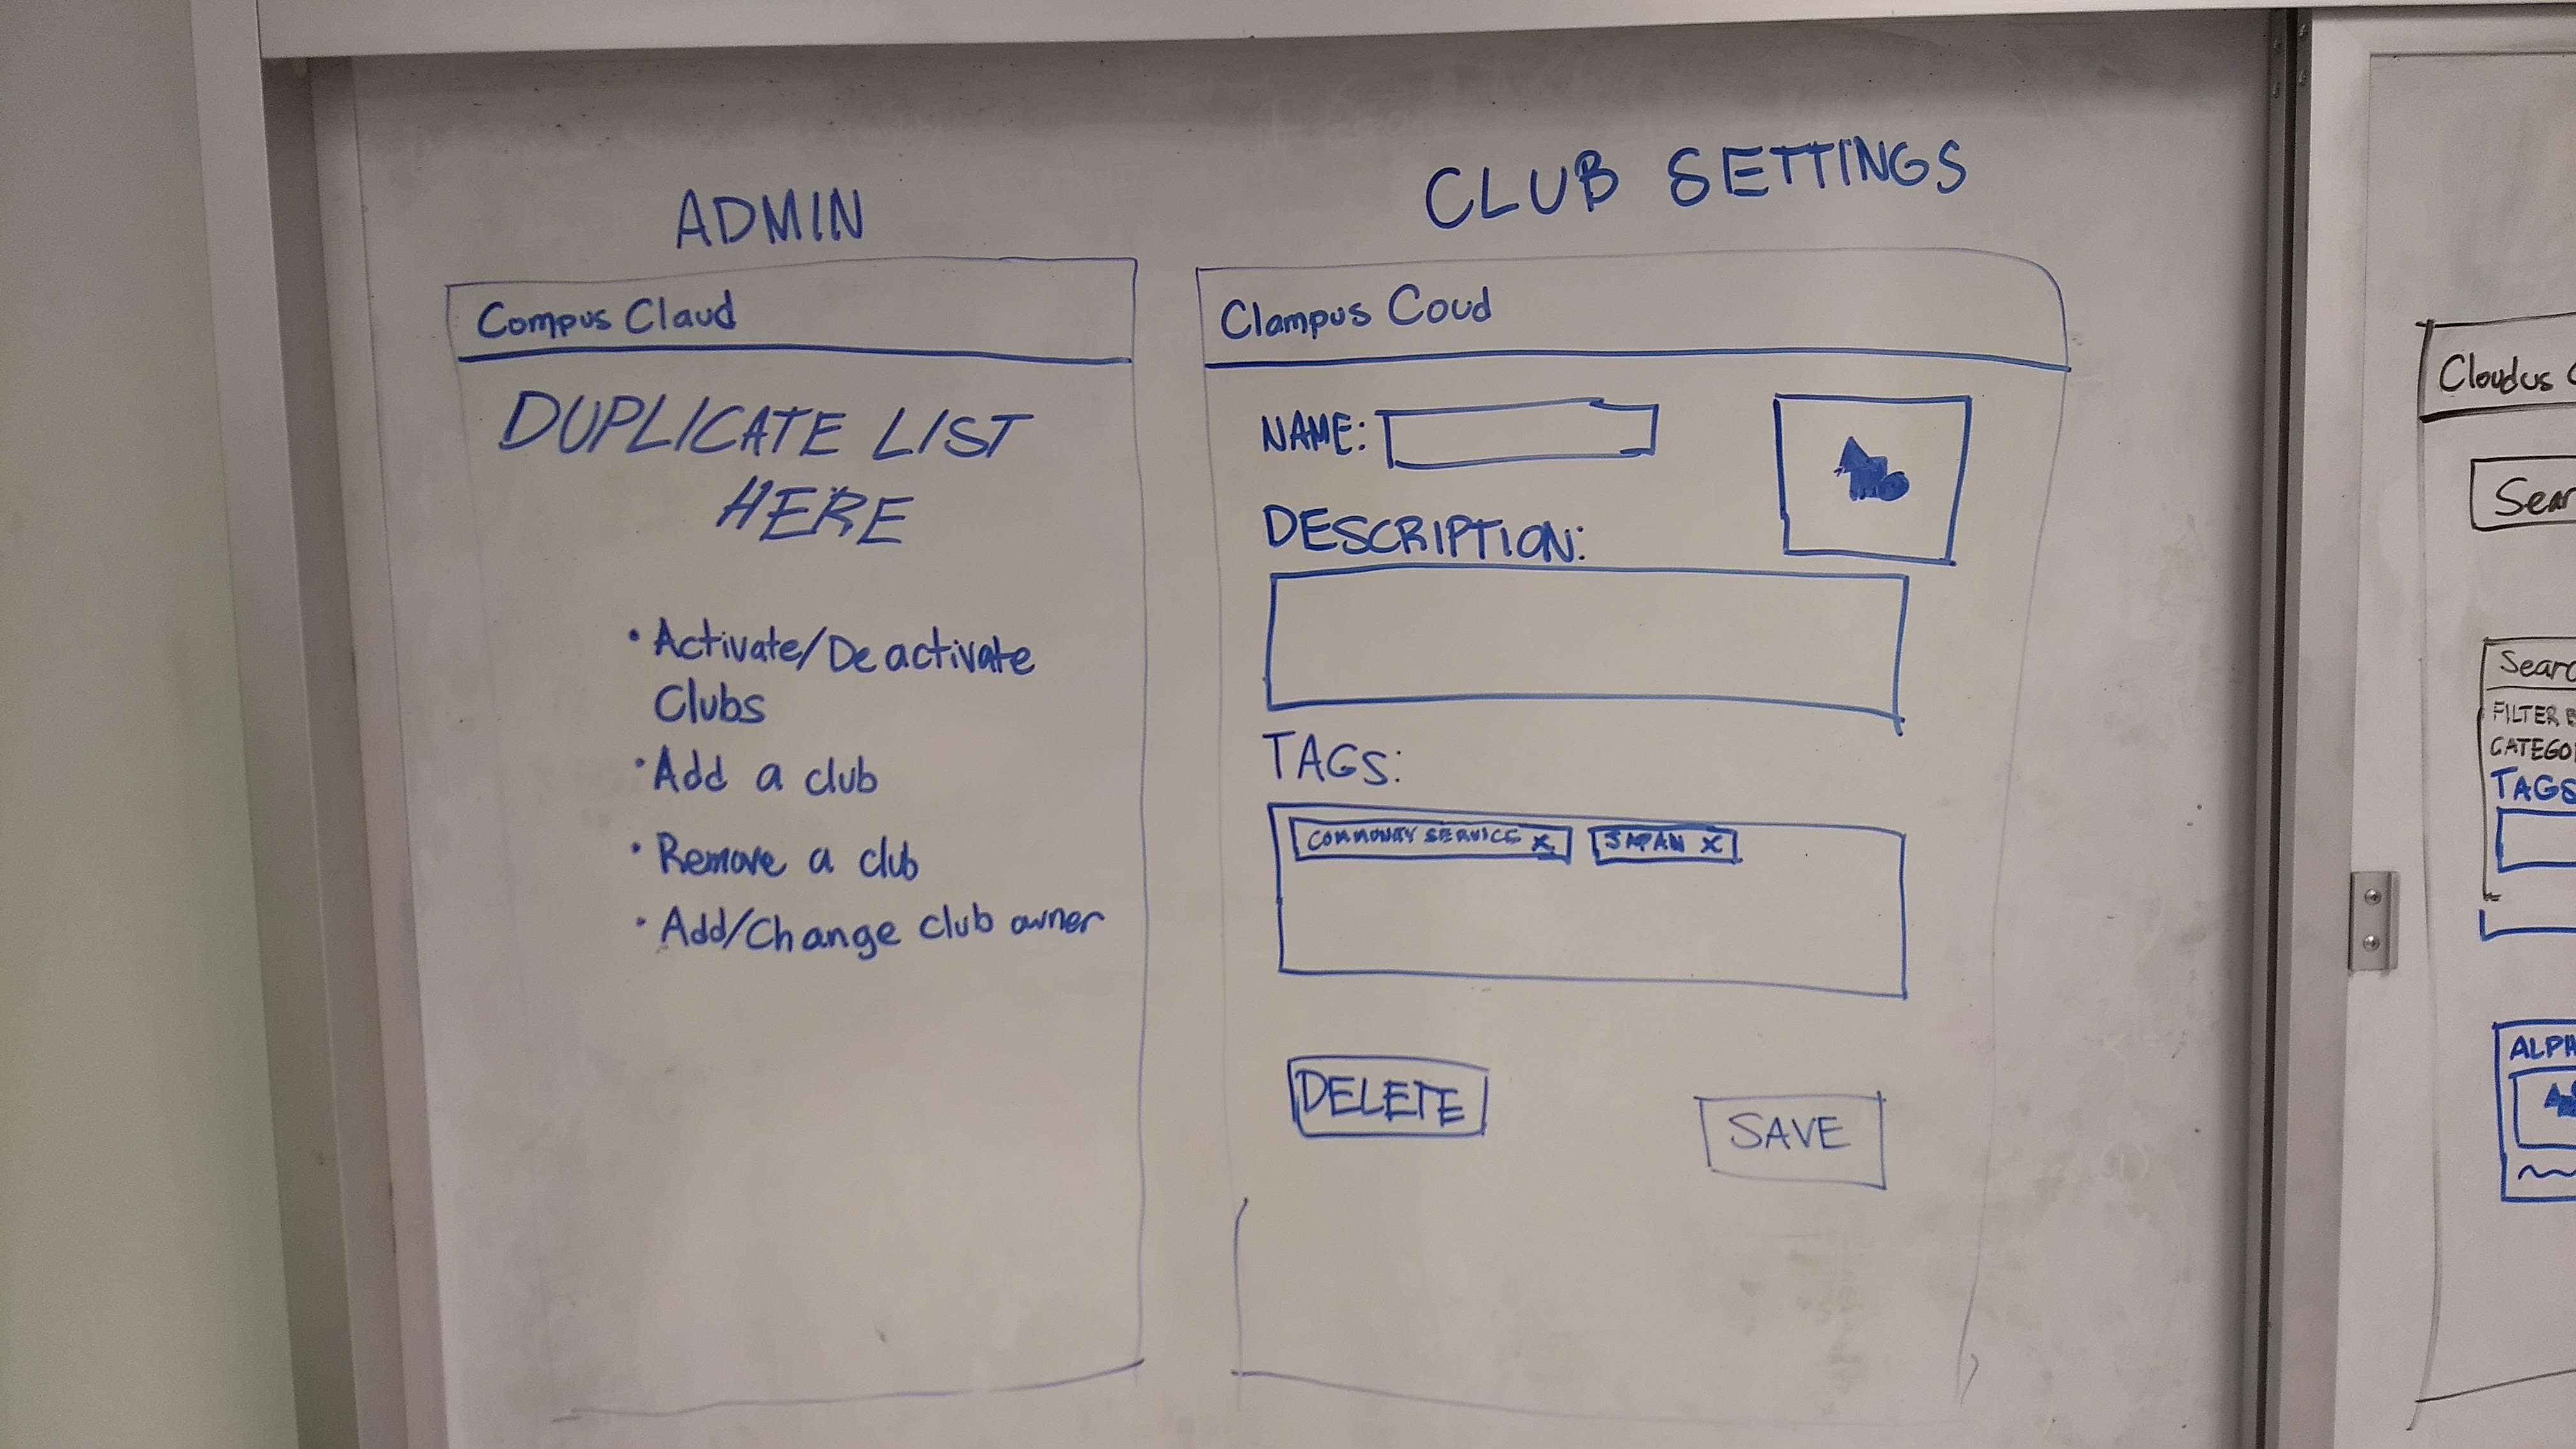 ADMIN
Compus Claud
DUPLICATE LIST
HERE
• Activate/Deactivate
Clubs
• Add a club
• Remove a club
• Add/Change club owner
CLUB SETTINGS
Clampus Coud
NAME:
DESCRIPTION:
TAGS:
COMMUNITY SERVICE X
JAPAN X
DELETE
SAVE
Cloudus
Sear
Searc
FILTER
CATEGO
TAGS
ALPH